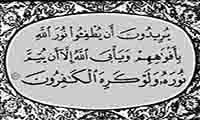 يُرِيدُونَ أَن يُطْفِـُٔوا۟ نُورَ ٱللَّهِ
بِأَفْوَٰهِهِمْ وَيَأْبَى ٱللَّهُ إِلَّآ أَن يُتِمَّ
نُورَهُۥ وَلَوْ كَرِهَ ٱلْكَٰفِرُونَ